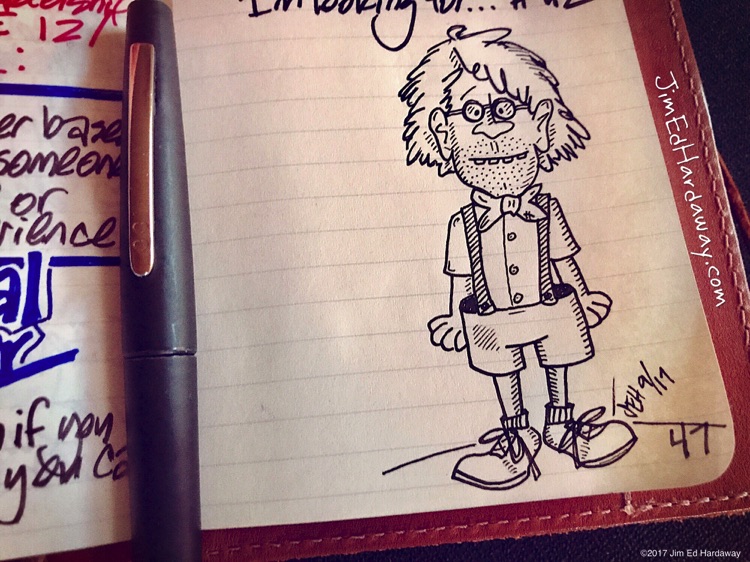 er base
someone
or
rience
al
if you
you ca
I'm looking for...
JimEdHardaway.com
JEH 9/17
47
©2017 Jim Ed Hardaway